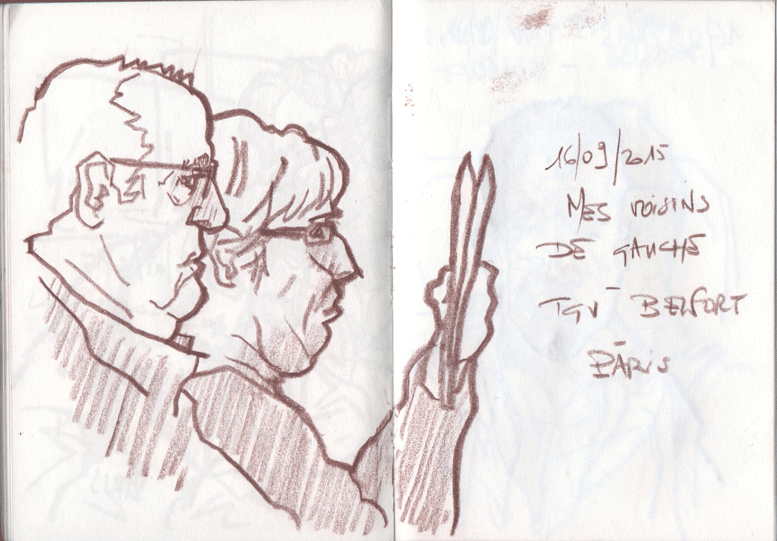 16/09/2015
MES VOISINS
DE GAUCHE
TGV - BELFORT
PARIS